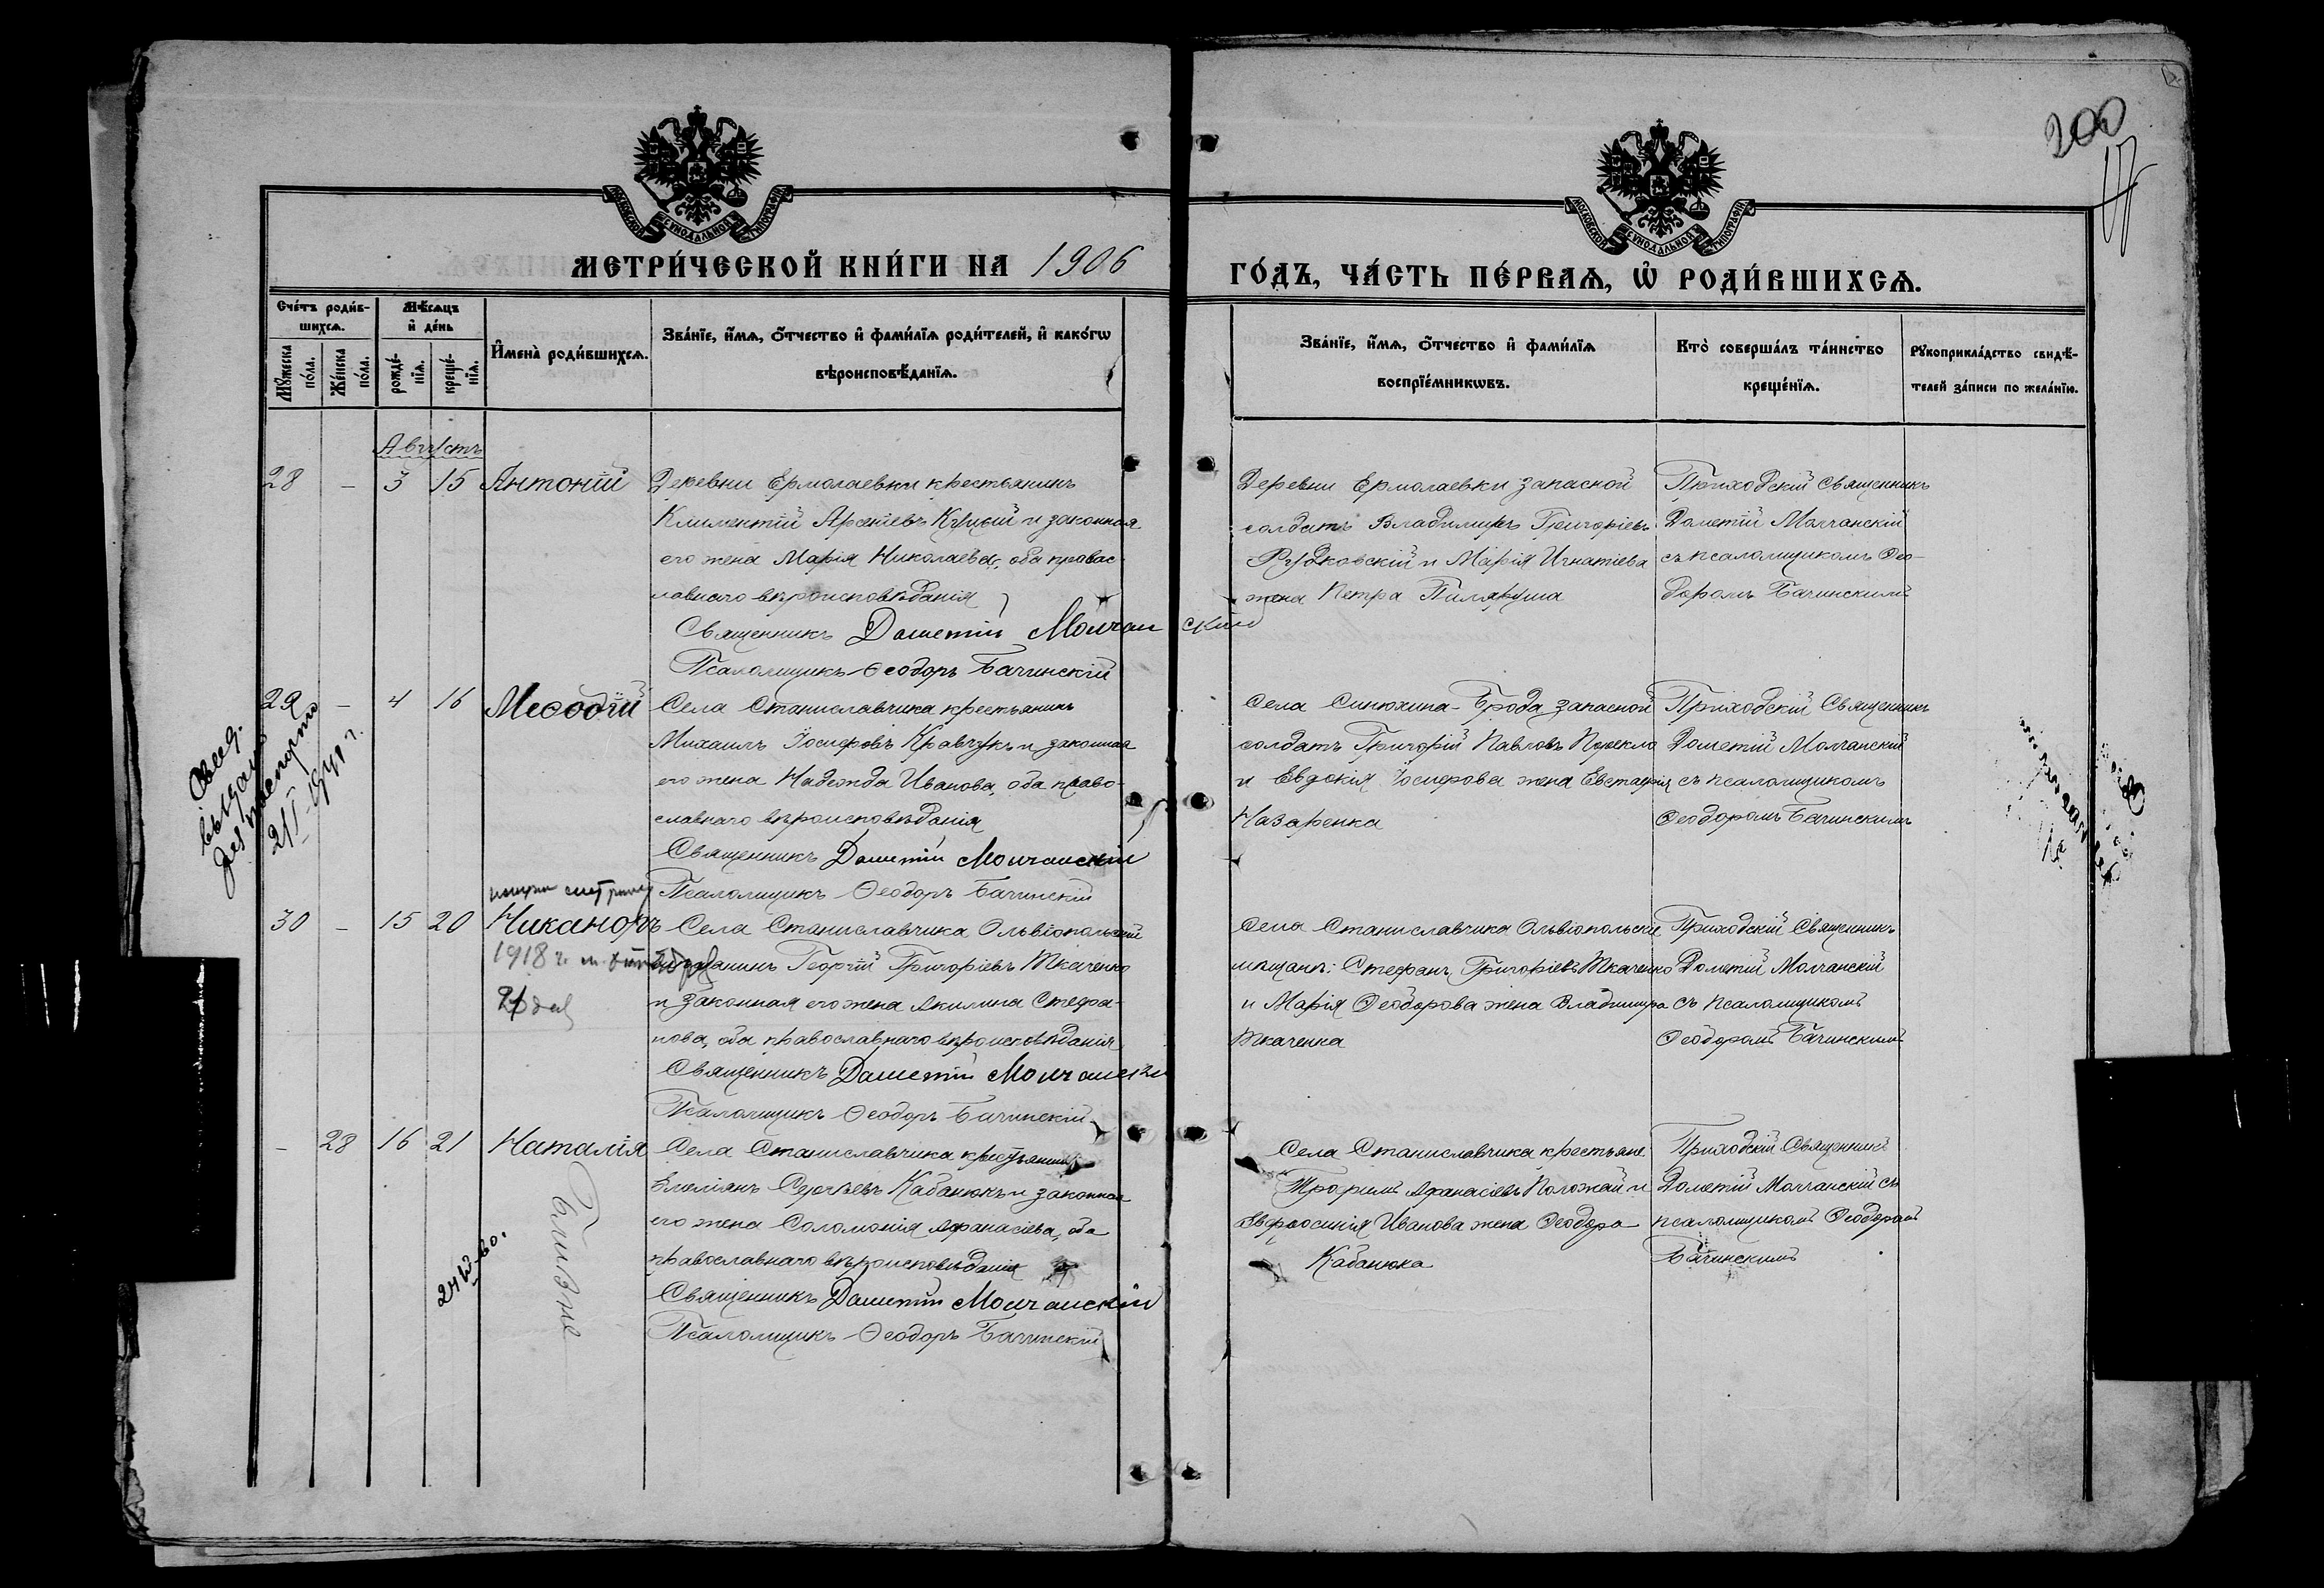 200
МОСКОВСКОЙ СѴНОДАЛЬНОЙ ТИПОГРАФІИ
МОСКОВСКОЙ СѴНОДАЛЬНОЙ ТИПОГРАФІИ
МЕТРИ́ЧЕСКОЙ КНИ́ГИ НА 1906
ГО́ДЪ, ЧА́СТЬ ПЕ́РВАѦ, Ѡ҆ РОДИ́ВШИХСѦ.
Сче́тъ роди́в-
шихсѧ.
Мꙋ́жеска по́ла.
Же́нска по́ла.
Мѣ́сѧцъ
и҆ де́нь
рожде́-
нїѧ.
креще́-
нїѧ.
И҆мена̀ роди́вшихсѧ.
Зва́нїе, и҆́мѧ, ѻ҆́тчество и҆ фами́лїѧ роди́телей, и҆ како́гѡ
вѣроисповѣ́данїѧ.
Зва́нїе, и҆́мѧ, ѻ҆́тчество и҆ фами́лїѧ
воспрїе́мникѡвъ.
Кто̀ соверша́лъ та́инство
креще́нїѧ.
Рꙋкоприкла́дство свидѣ́-
телей за́писи по жела́нїю.
Августъ
28 – 3 15 Антоній
Деревни Ермолаевки крестьянинъ
Климентій Арсеніевъ и законная
его жена Марія Николаева, оба правос
лавнаго вѣроисповѣданія
Священникъ Дометій Молчанскій
Псаломщикъ Ѳеодоръ Бачинскій
Деревни Ермолаевки запасной
солдатъ Владимиръ Григоріевъ
Рудковскій и Марія Игнатіева
жена Петра Пилявуша
Приходскій Священникъ
Дометій Молчанскій
съ псаломщикомъ Ѳео-
доромъ Бачинскимъ
29 – 4 16 Меѳодій
Села Станиславчика крестьянинъ
Михаилъ Іосифовъ Кравчукъ и законная
его жена Надежда Иванова, оба право-
славнаго вѣроисповѣданія
Священникъ Дометій Молчанскій
Псаломщикъ Ѳеодоръ Бачинскій
Села Синюхина-Брода запасной
солдатъ Григорій Павловъ
и Евдокія Іосифова жена Евстафія
Назаренка
Приходскій Священникъ
Дометій Молчанскій
съ псаломщикомъ
Ѳеодоромъ Бачинскимъ
выдано
для паспорта
21/I 1941 г.
30 – 15 20 Никаноръ
1918 г.
Села Станиславчика Ольвіопольскій
мѣщанинъ Георгій Григоріевъ Ткаченко
и законная его жена Акилина Стефа-
нова, оба православнаго вѣроисповѣданія
Священникъ Дометій Молчанскій
Псаломщикъ Ѳеодоръ Бачинскій
Села Станиславчика Ольвіопольскіе
мѣщане: Стефанъ Григоріевъ Ткаченко
и Марія Ѳеодорова жена Владимира
Ткаченка
Приходскій Священникъ
Дометій Молчанскій
съ псаломщикомъ
Ѳеодоромъ Бачинскимъ
– 28 16 21 Наталія
Села Станиславчика крестьянинъ
Емеліанъ Сергѣевъ Кабанюкъ и законная
его жена Соломонія Афанасіева, оба
православнаго вѣроисповѣданія
Священникъ Дометій Молчанскій
Псаломщикъ Ѳеодоръ Бачинскій
Села Станиславчика крестьяне
Трофимъ Афанасіевъ Положай и
Евфросинія Иванова жена Ѳеодора
Кабанюка
Приходскій Священникъ
Дометій Молчанскій съ
псаломщикомъ Ѳеодоромъ
Бачинскимъ